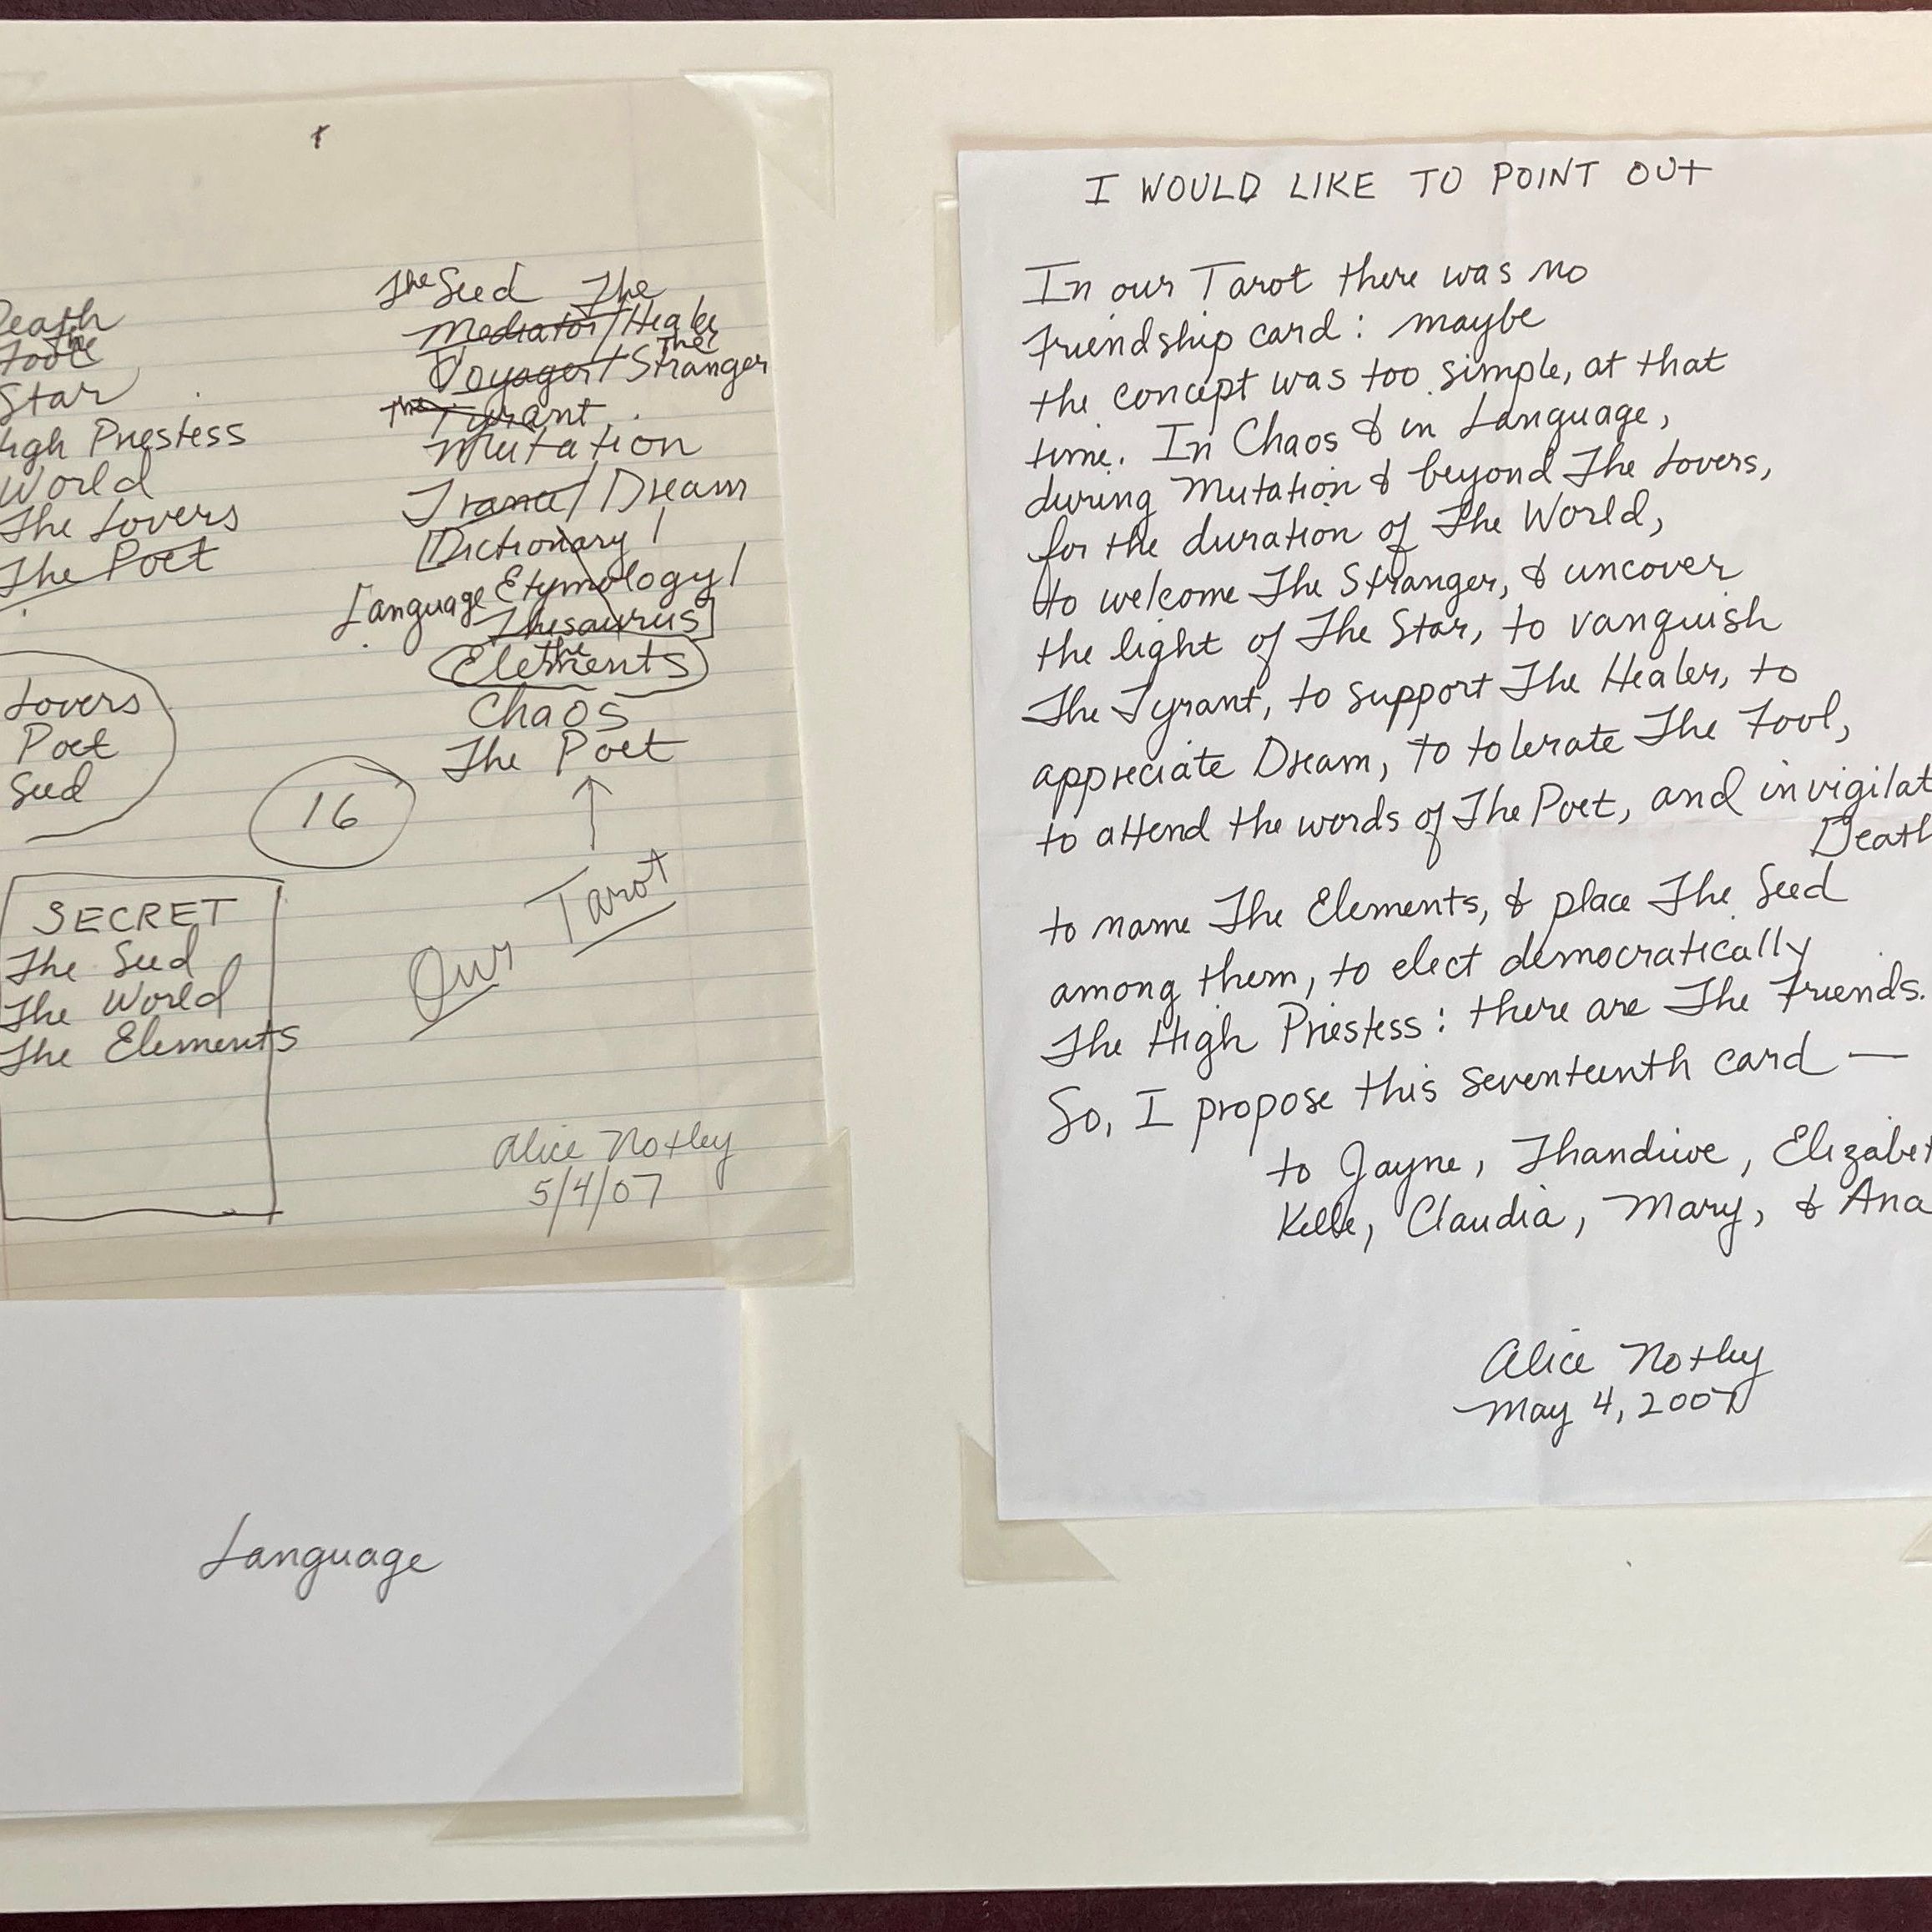 Death
The
Fool
Star
High Priestess
World
The Lovers
The Poet
Lovers
Poet
Seed
16
SECRET
The Seed
The World
The Elements
The Seed The
Mediator/Healer
The
Voyager/Stranger
The Tyrant
Mutation
Trance/Dream
[Dictionary/
Language Etymology/
Thesaurus]
The
Elements
Chaos
The Poet
Our Tarot
Alice Notley
5/4/07
Language
I WOULD LIKE TO POINT OUT
In our Tarot there was no
Friendship card: maybe
the concept was too simple, at that
time. In Chaos & in Language,
during Mutation & beyond The Lovers,
for the duration of The World,
to welcome The Stranger, & uncover
the light of The Star, to vanquish
The Tyrant, to support The Healer, to
appreciate Dream, to tolerate The Fool,
to attend the words of The Poet, and invigilat
Death
to name The Elements, & place The Seed
among them, to elect democratically
The High Priestess: there are The Friends.
So, I propose this seventeenth card —
to Jayne, Thandiwe, Elizabet
Kelle, Claudia, Mary, & Ana
Alice Notley
May 4, 2007